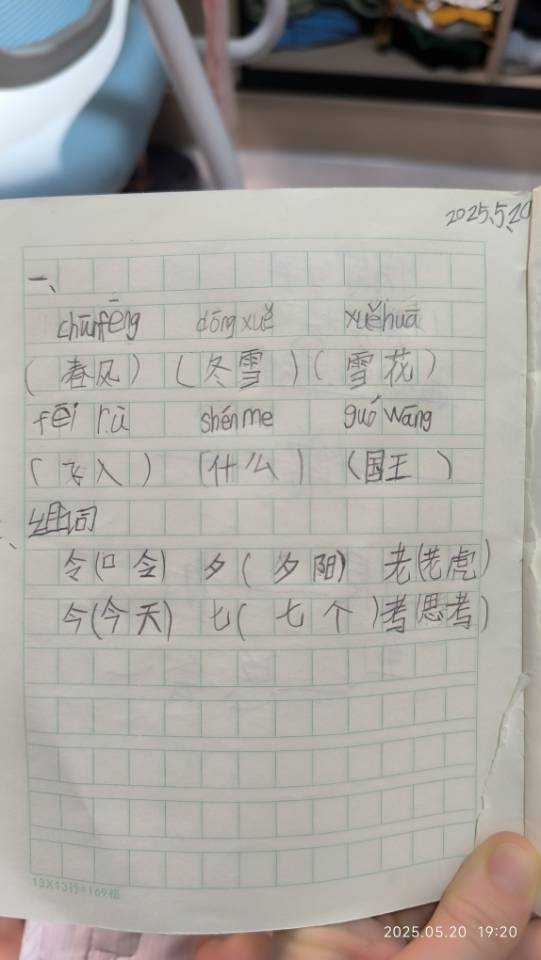 2025.5.20
一、
chūnfēng dōng xuě xuěhuā
( 春风 ) ( 冬雪 ) ( 雪花 )
fēi rù shén me guó wáng
( 飞入 ) ( 什么 ) ( 国王 )
二、组词
令(口令) 夕( 夕阳) 老(老虎)
今(今天) 七( 七个 ) 考(思考)
13X13行=169格
2025.05.20 19:20